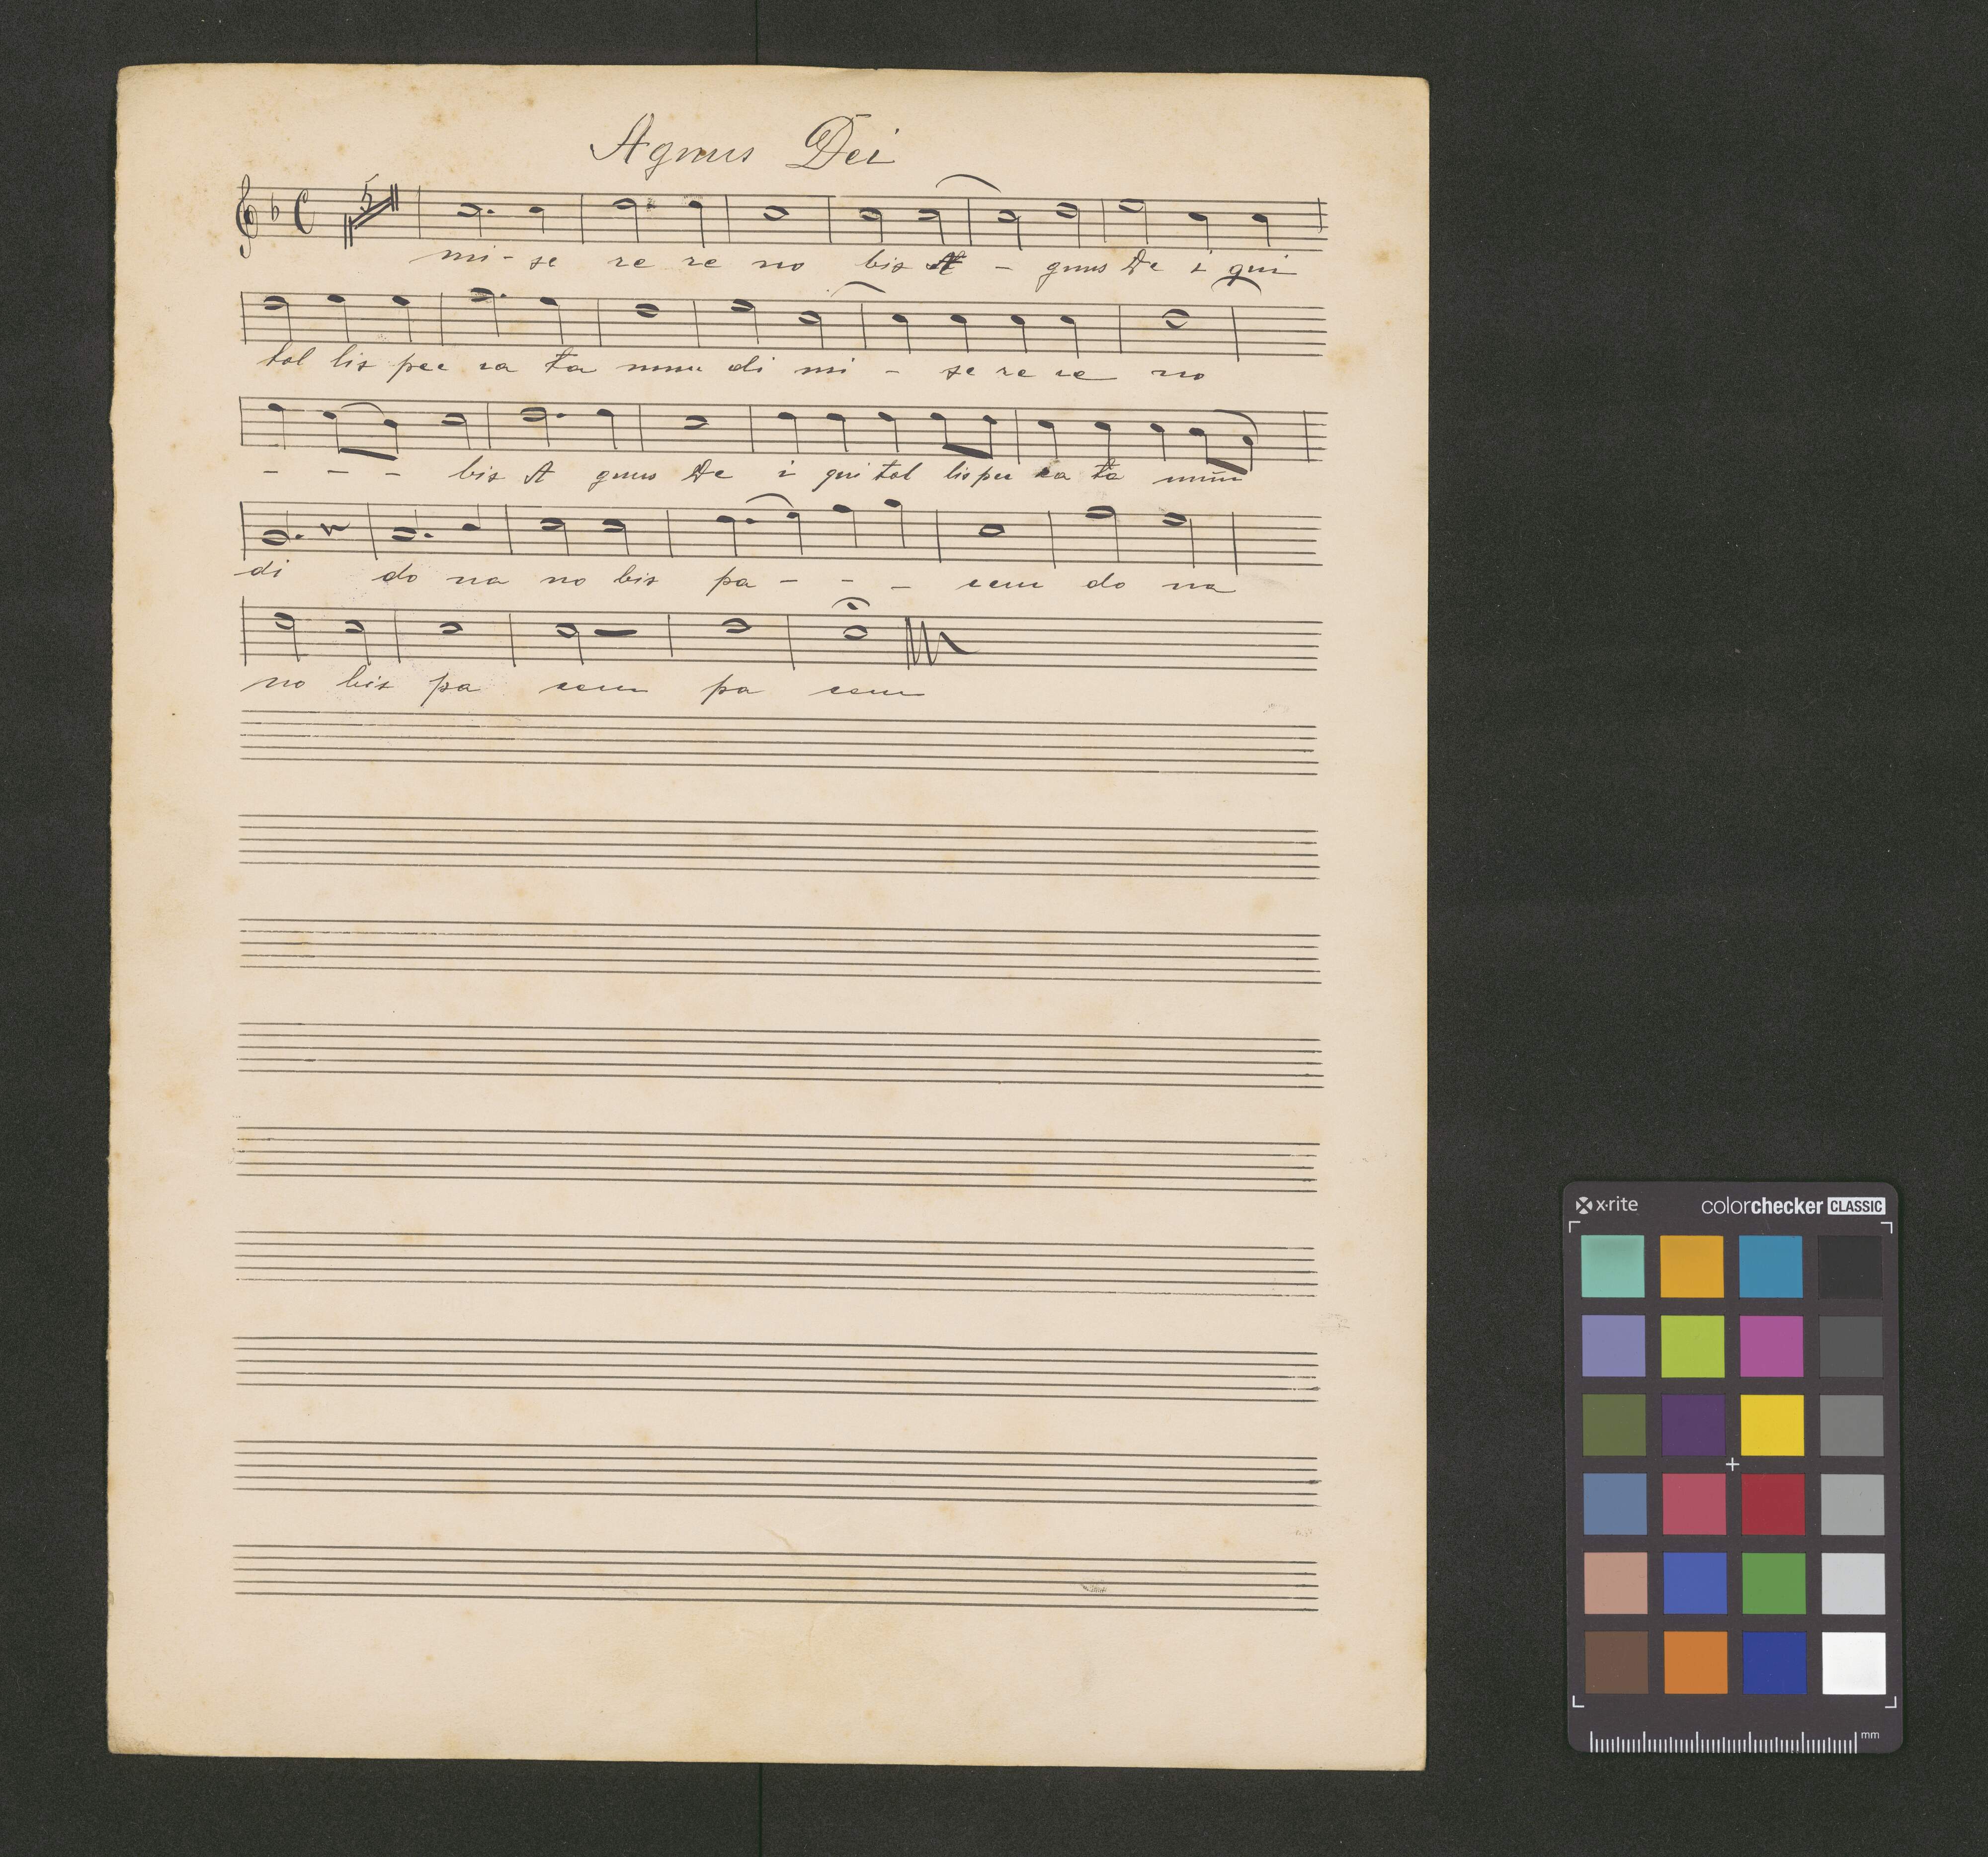 Agnus Dei
5
mi - se re re no bis A - gnus De i qui
tol lis pec ca ta mun di mi - se re re no
- - - bis A gnus De i qui tol lis pec ca ta mun
di do na no bis pa - - - cem do na
no bis pa cem pa cem
x·rite colorchecker CLASSIC
mm